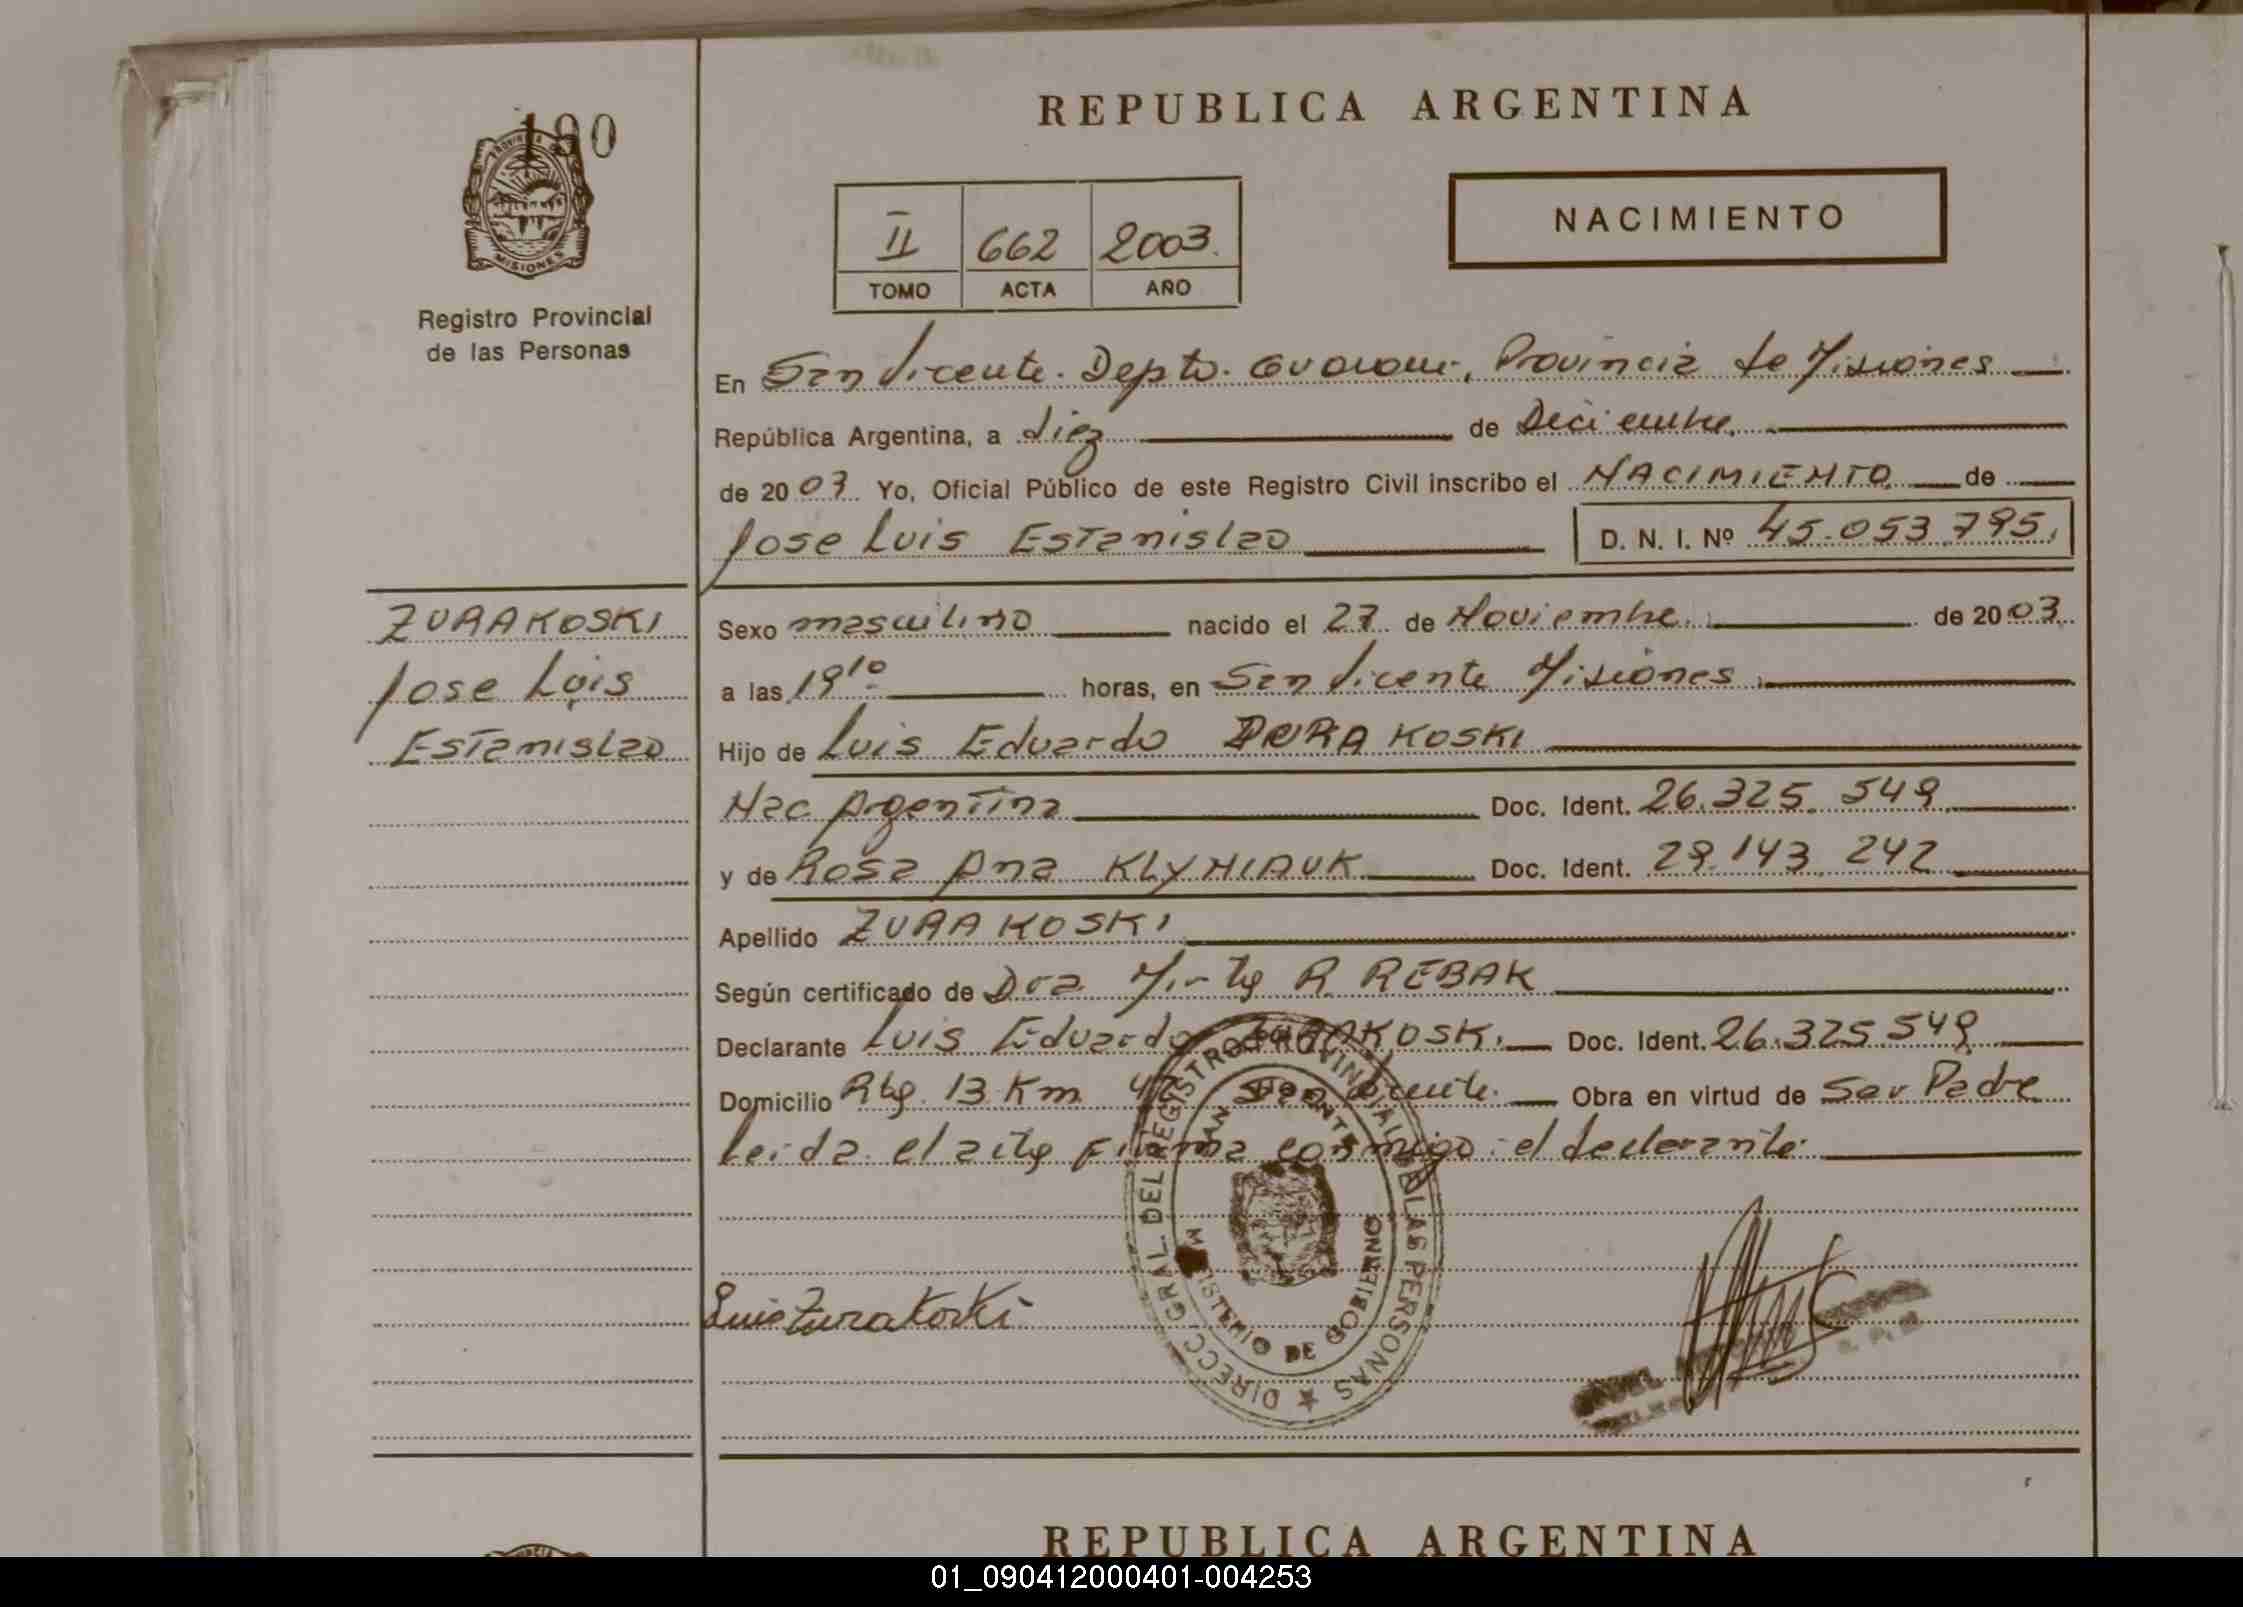 190
PROVINCIA DE
MISIONES
Registro Provincial
de las Personas
REPUBLICA ARGENTINA
II 662 2003.
TOMO ACTA AÑO
NACIMIENTO
En San Vicente. Depto. Guarani, Provincia de Misiones
República Argentina, a diez de Deciembre
de 2003 Yo, Oficial Público de este Registro Civil inscribo el NACIMIENTO de
Jose Luis Estanislao D. N. I. Nº 45.053.795.
ZURAKOSKI
Jose Luis
Estanislao
Sexo masculino nacido el 27 de Noviembre de 2003
a las 19¹⁰ horas, en San Vicente Misiones
Hijo de Luis Eduardo ZURAKOSKI
Nac Argentina Doc. Ident. 26.325.549
y de Rosa Ana KLYNIAUK Doc. Ident. 29.143.242
Apellido ZURAKOSKI
Según certificado de Dra. R. REBAK
Declarante Luis Eduardo ZURAKOSKI Doc. Ident. 26.325.549
Domicilio Rta. 13 Km San Vicente. Obra en virtud de Ser Padre
Leida el acta Firma conmigo el declarante.
DIRECC. GRAL. DEL REGISTRO PROVINCIAL DE LAS PERSONAS
SAN VICENTE
MINISTERIO DE GOBIERNO
Luis Zurakoski
REPUBLICA ARGENTINA
01_090412000401-004253